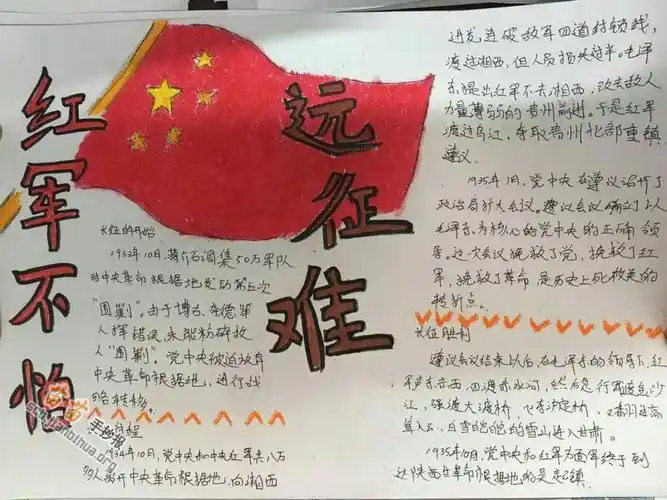 红军不怕
远征难
长征的开始
1933年10月,蒋介石调集50万军队
对中央革命根据地发动第五次
"围剿"。由于博古、李德军
人指挥错误,未能粉碎敌
人"围剿"。党中央被迫放弃
中央革命根据地,进行战
略转移。
长征过程
1934年10月,党中央和中央红军共八万
多人离开中央革命根据地,向湘西
进发连破敌军四道封锁线,
渡过湘西,但人员损失过半。毛泽
东提出红军不去湘西,改去敌人
力量薄弱的贵州前进。于是红军
渡过乌江,夺取贵州北部重镇
遵义。
1935年1月,党中央在遵义召开了
政治局扩大会议。遵义会议确立了以
毛泽东为核心的党中央的正确领
导。这一次会议挽救了党,挽救了红
军,挽救了革命,是历史上
转折点。
长征胜利
遵义会议结束以后,在毛泽东的领导下,红
军声东击西,四渡赤水河,然后急行军渡金沙
江,强渡大渡桥,飞夺泸定桥,
雪山进入甘肃。
1935年10月,党中央和红军方面军终于到
达陕西革命根据地的吴起镇。
苗苗手抄报
shouchaobihua.org